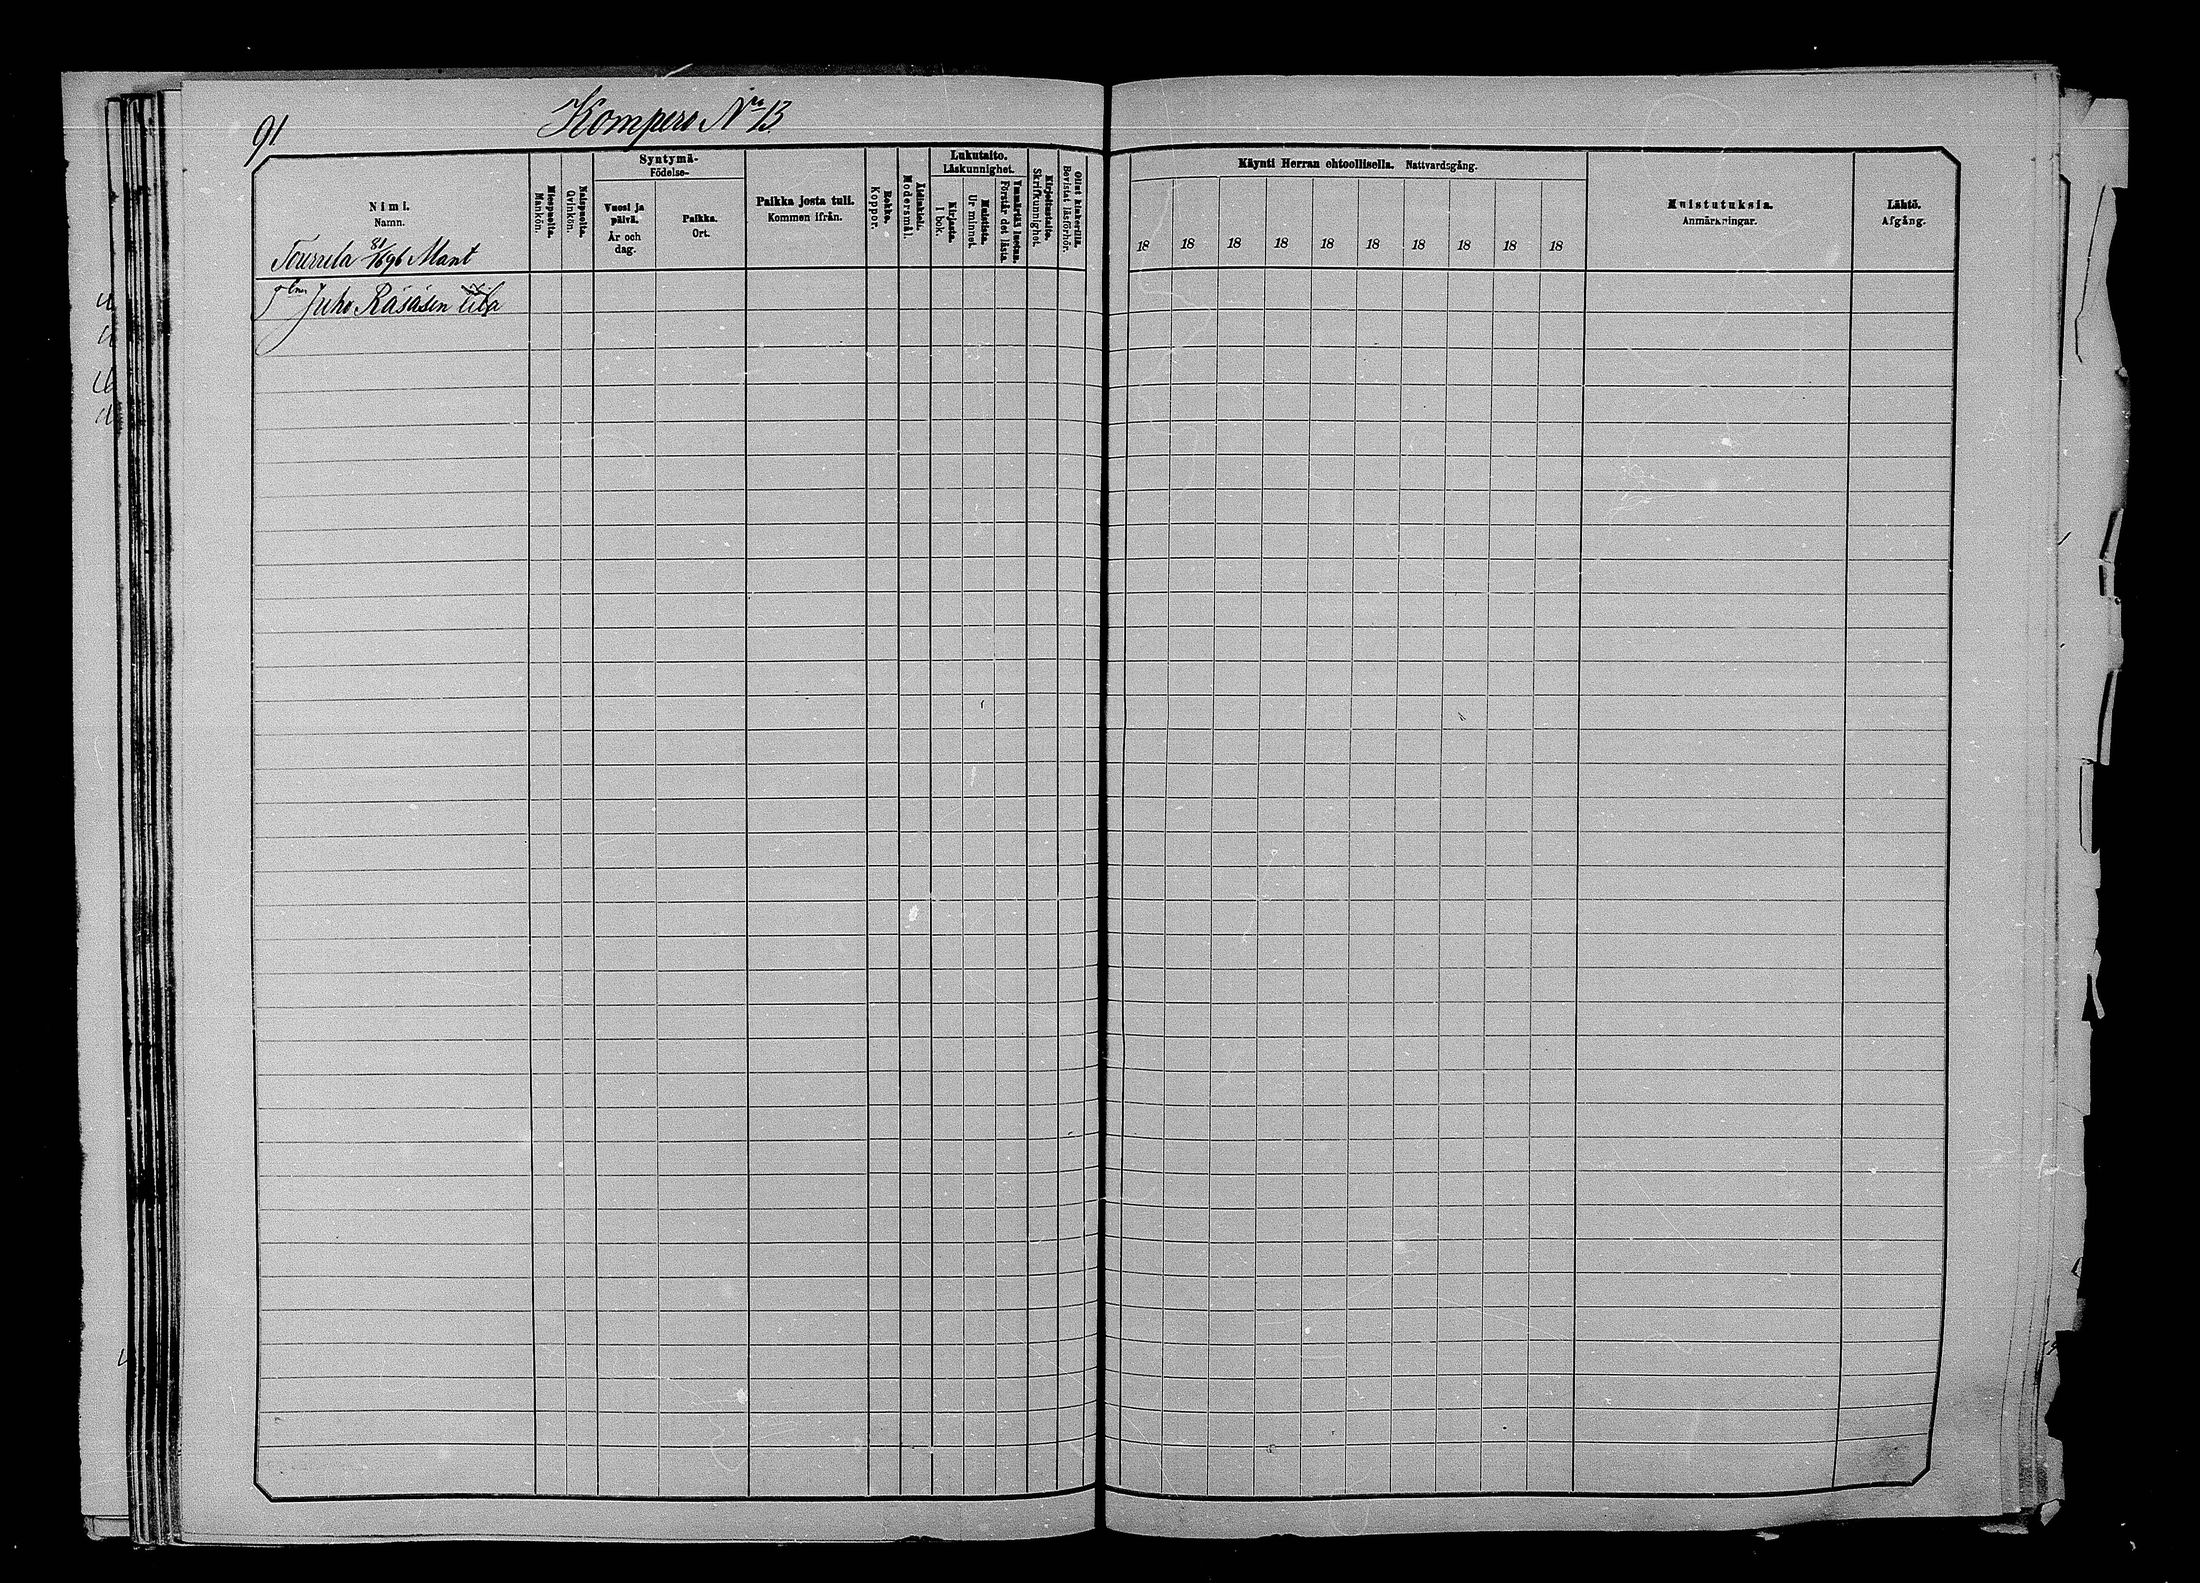 91
Kompero Nro 13
Syntymä-
Födelse-
Lukutaito.
Läskunnighet.
Käynti Herran ehtoollisella. Nattvardsgång.
Nimi.
Namn.
Miespuolia.
Mankön.
Naispuolia.
Qvinkön.
Vuosi ja
päivä.
År och
dag.
Paikka.
Ort.
Paikka josta tuli.
Kommen ifrån.
Rokko.
Koppor.
Äidinkieli.
Modersmål.
Kirjasta.
I bok.
Muistista.
Ur minnet.
Ymmärtää luetun.
Förstår det lästa.
Kirjoitustaito.
Skrifkunnighet.
Ollut kinkerillä.
Bevistat läsförhör.
18 18 18 18 18 18 18 18 18 18
Muistutuksia.
Anmärkningar.
Lähtö.
Afgång.
81/696 Mant
Juho Räsäsen tila